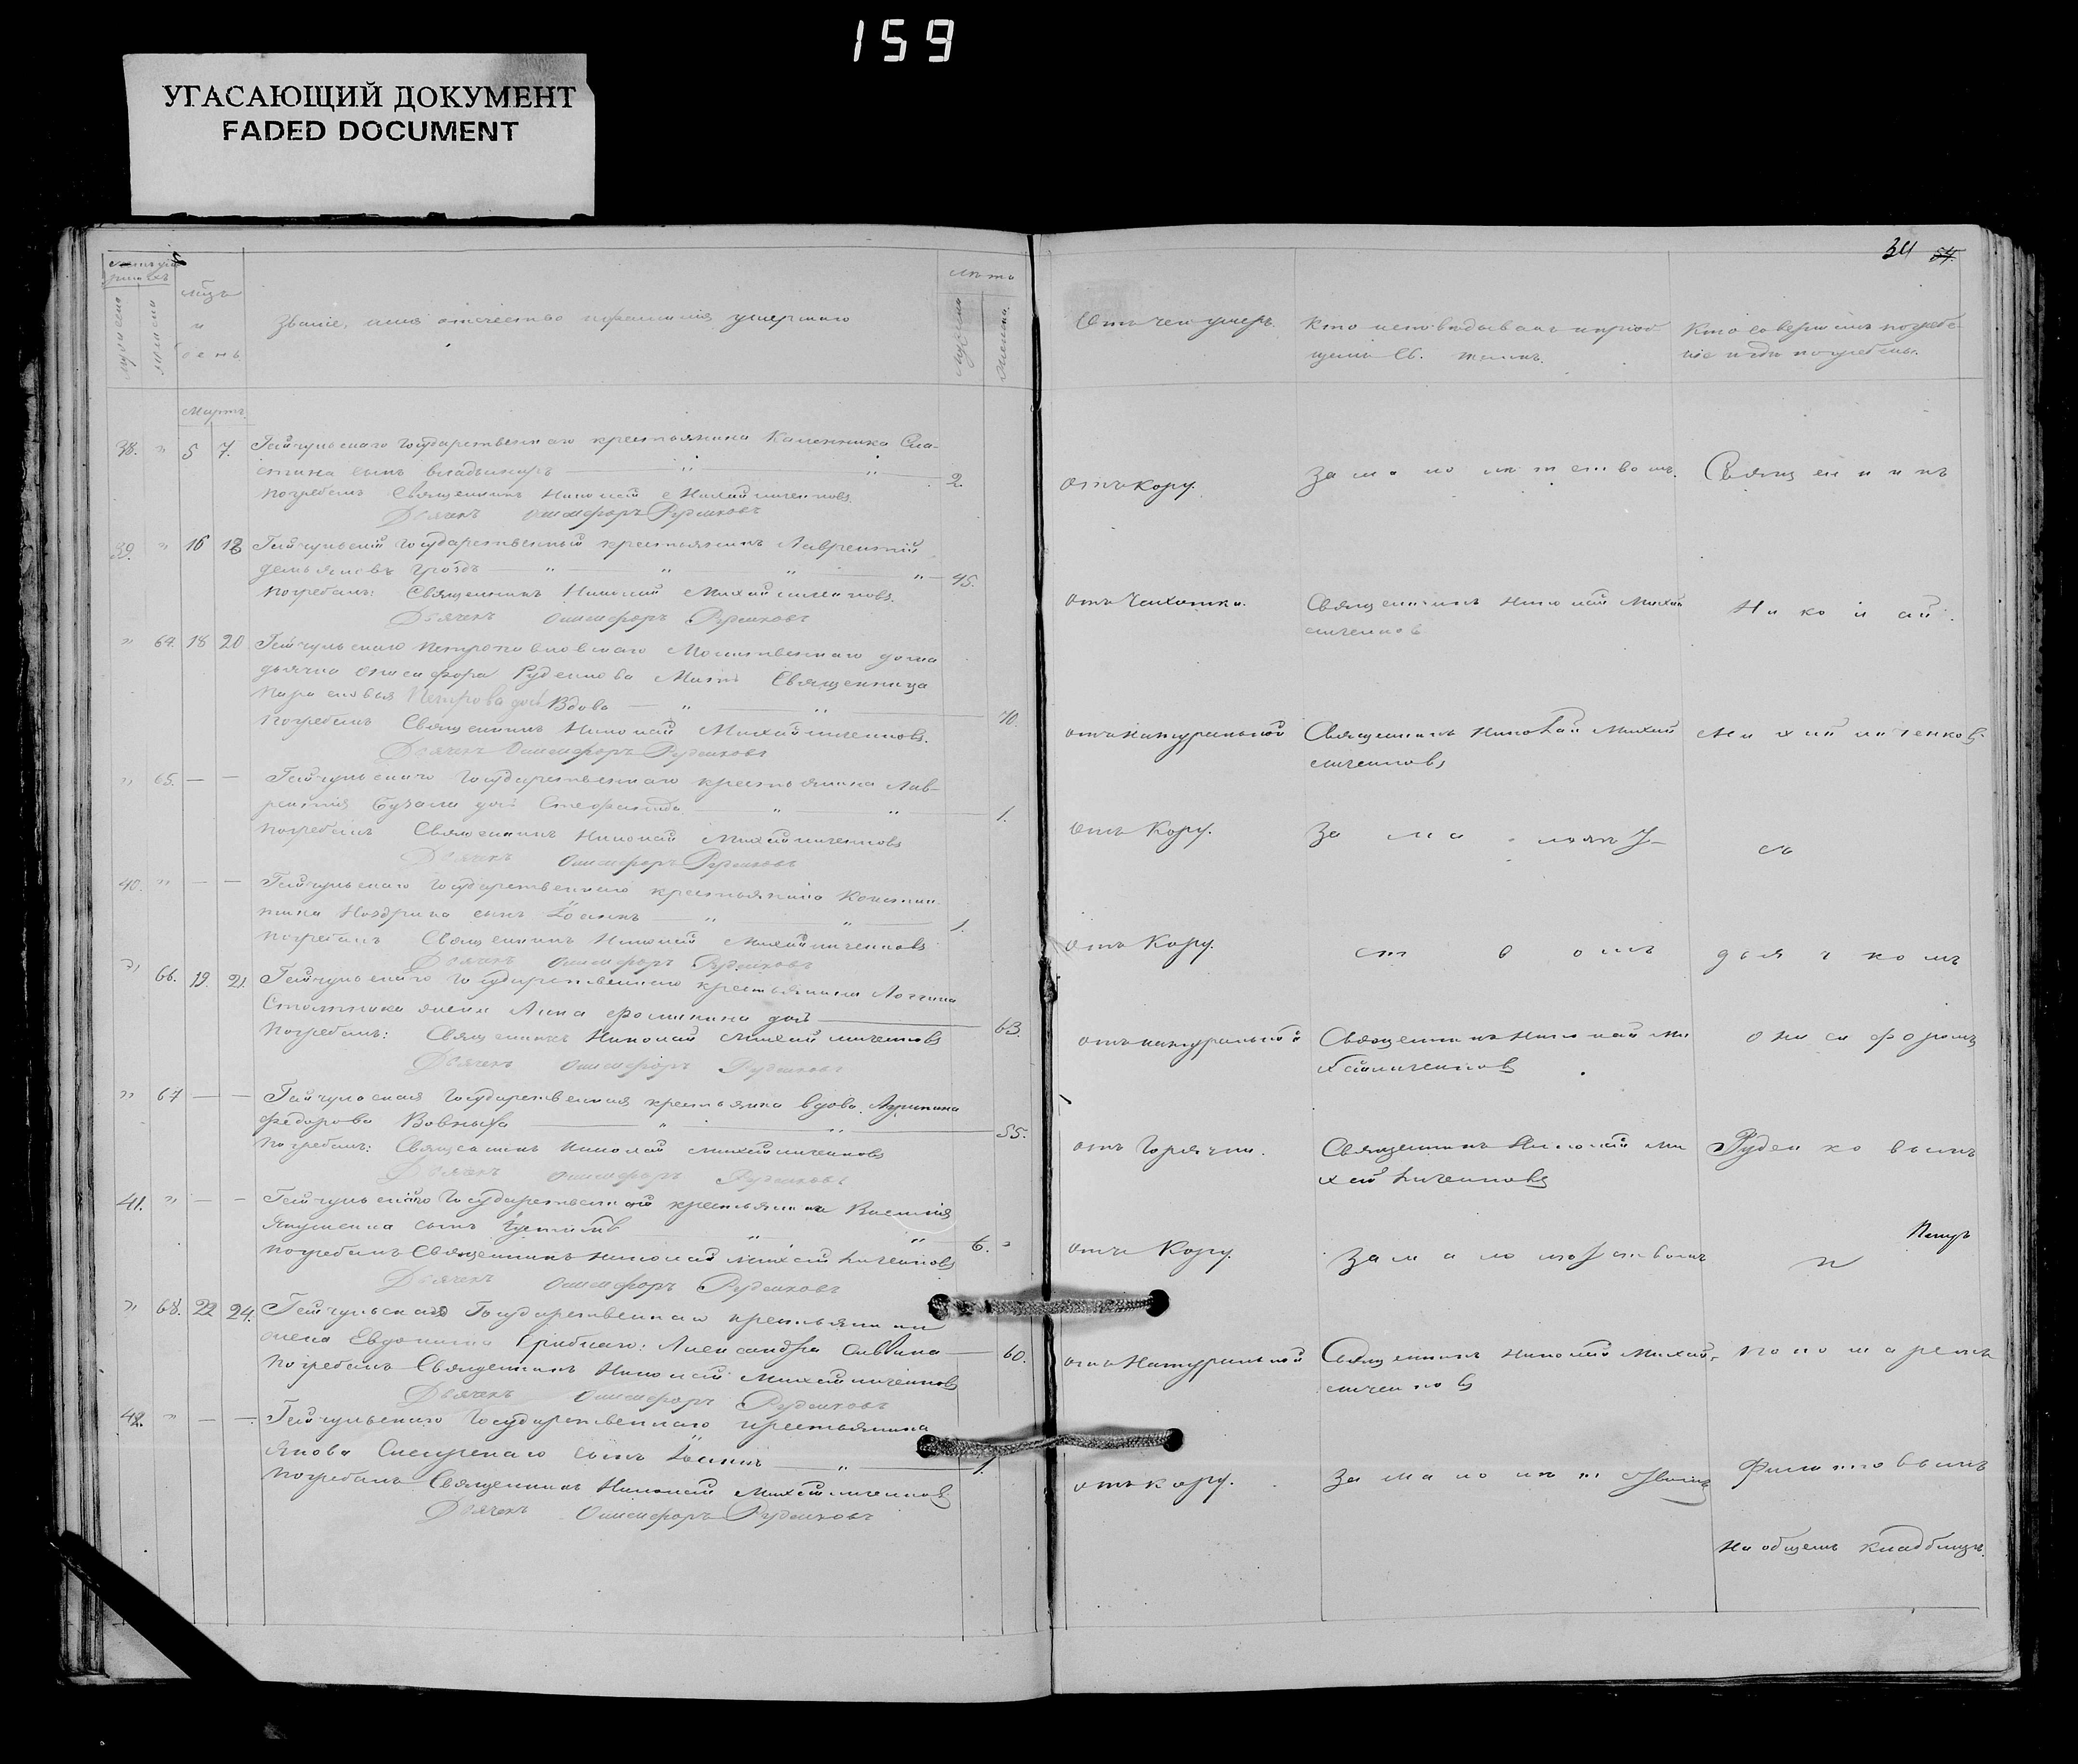 159
УГАСАЮЩИЙ ДОКУМЕНТ
FADED DOCUMENT
34 54.
мѣсяцъ
и
день
Званіе, имя отчество и фамилія умершаго
лѣта
мужеска
женска
Мартъ.
38. " 5 7. Гайчульскаго Государственнаго крестьянина Каленика Сла-
стина сынъ Владимиръ — " — " — 2.
Погребалъ Священникъ Николай Михайличенковъ
Дьячекъ Онисифоръ Руденковъ
39. " 16 18 Гайчульскій Государственный крестьянинъ Лаврентій
Демьяновъ Гроздъ — " — " — " — " — 45.
Погребалъ: Священникъ Николай Михайличенковъ.
Дьячекъ Онисифоръ Руденковъ
" 64. 18 20 Гайчульскаго Петропавловскаго Молитвеннаго дома
дьячка Онисифора Руденкова Мать Священница
Парасковья Петрова дочь Вдова — " — " — 70.
Погребалъ Священникъ Николай Михайличенковъ.
Дьячекъ Онисифоръ Руденковъ
" 65. — — Гайчульскаго Государственнаго крестьянина Лав-
рентія дочь Стефанида — " — " — 1.
Погребалъ Священникъ Николай Михайличенковъ
Дьячекъ Онисифоръ Руденковъ
40. " — — Гайчульскаго Государственнаго крестьянина Констан-
тина Ноздрина сынъ Іоаннъ — " — " — 1.
Погребалъ Священникъ Николай Михайличенковъ
Дьячекъ Онисифоръ Руденковъ
" 66. 19. 21. Гайчульскаго Государственнаго крестьянина Логгина
жена Анна дочь — 63.
Погребалъ: Священникъ Николай Михайличенковъ
Дьячекъ Онисифоръ Руденковъ
" 67 — — Гайчульская Государственная крестьянка вдова Агрипина
Федорова — " — " — 55.
Погребалъ: Священникъ Николай Михайличенковъ
Дьячекъ Онисифоръ Руденковъ
41. " — — Гайчульскаго Государственнаго крестьянина Василія
Якушенка сынъ — " — " — 6. "
Погребалъ Священникъ Николай Михайличенковъ
Дьячекъ Онисифоръ Руденковъ
" 68. 22 24. Гайчульскаго Государственнаго крестьянина
жена Александра Саввина — 60.
Погребалъ Священникъ Николай Михайличенковъ
Дьячекъ Онисифоръ Руденковъ
42. " — — Гайчульскаго Государственнаго крестьянина
Якова сынъ Іоаннъ — " — 1.
Погребалъ Священникъ Николай Михайличенковъ
Дьячекъ Онисифоръ Руденковъ
Отъ чего умеръ.
Кто исповѣдывалъ и приоб-
щалъ Св. тайнъ.
Кто совершалъ погребе-
ніе и гдѣ погребены.
отъ кору.
За малолѣтствомъ.
Священникъ
отъ чахотки.
Священникъ Николай Михай
личенковъ
Николай
отъ натуральной
Священникъ Николай Михай
личенковъ
Михайличенковъ
отъ Кору.
За малолѣт-
съ
отъ Кору.
ствомъ
дьячкомъ
отъ натуральной
Священникъ Николай Ми
хайличенковъ
Онисифоромъ
отъ Горячки.
Священникъ Николай Ми
хайличенковъ
Руденковымъ
отъ Кору.
За малолѣтствомъ
и
отъ Натуральной
Священникъ Николай Михай-
личенковъ
пономаремъ
отъ кору.
За малолѣтствомъ
Филиповымъ
На общемъ кладбищѣ.